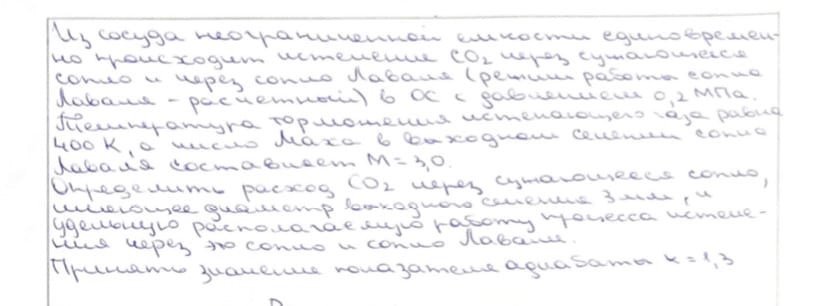 Из сосуда неограниченной емкости единовремен-
но происходит истечение CO₂ через сужающееся
сопло и через сопло Лаваля (режим работы сопла
Лаваля - расчетный) в ОС с давлением 0,2 МПа.
Температура торможения истекающего газа равна
400 К, а число Маха в выходном сечении сопла
Лаваля составляет М = 3,0.
Определить расход CO₂ через сужающееся сопло,
имеющее диаметр выходного сечения 3 мм, и
удельную располагаемую работу процесса истече-
ния через это сопло и сопло Лаваля.
Принять значение показателя адиабаты к = 1,3